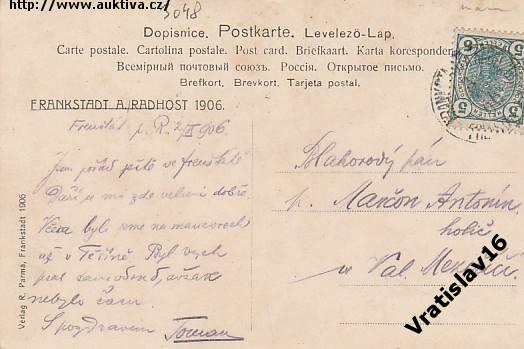 http://www.auktiva.cz/
5048
Dopisnice. Postkarte. Levelezö-Lap.
Carte postale. Cartolina postale. Post card. Briefkaart. Karta koresponden
Всемірный почтовый союзъ. Россія. Открытое письмо.
Brefkort. Brevkort. Tarjeta postal.
5 5
5 5
FRANKSTADT A/RADHOST 1906.
Frenštát p. R. 2/IX 906.
Jsem pořád ještě ve Frenštátě
Daří se mi zde velmi dobře.
Včera byli jsme na manévrech
až v Těšíně. Byl bych
psal
nebylo čas.
S pozdravem Toman
Blahorodý pán
p. Marčon Antonín
holič
Val.
Verlag R. Parma, Frankstadt 1906
Vratislav16